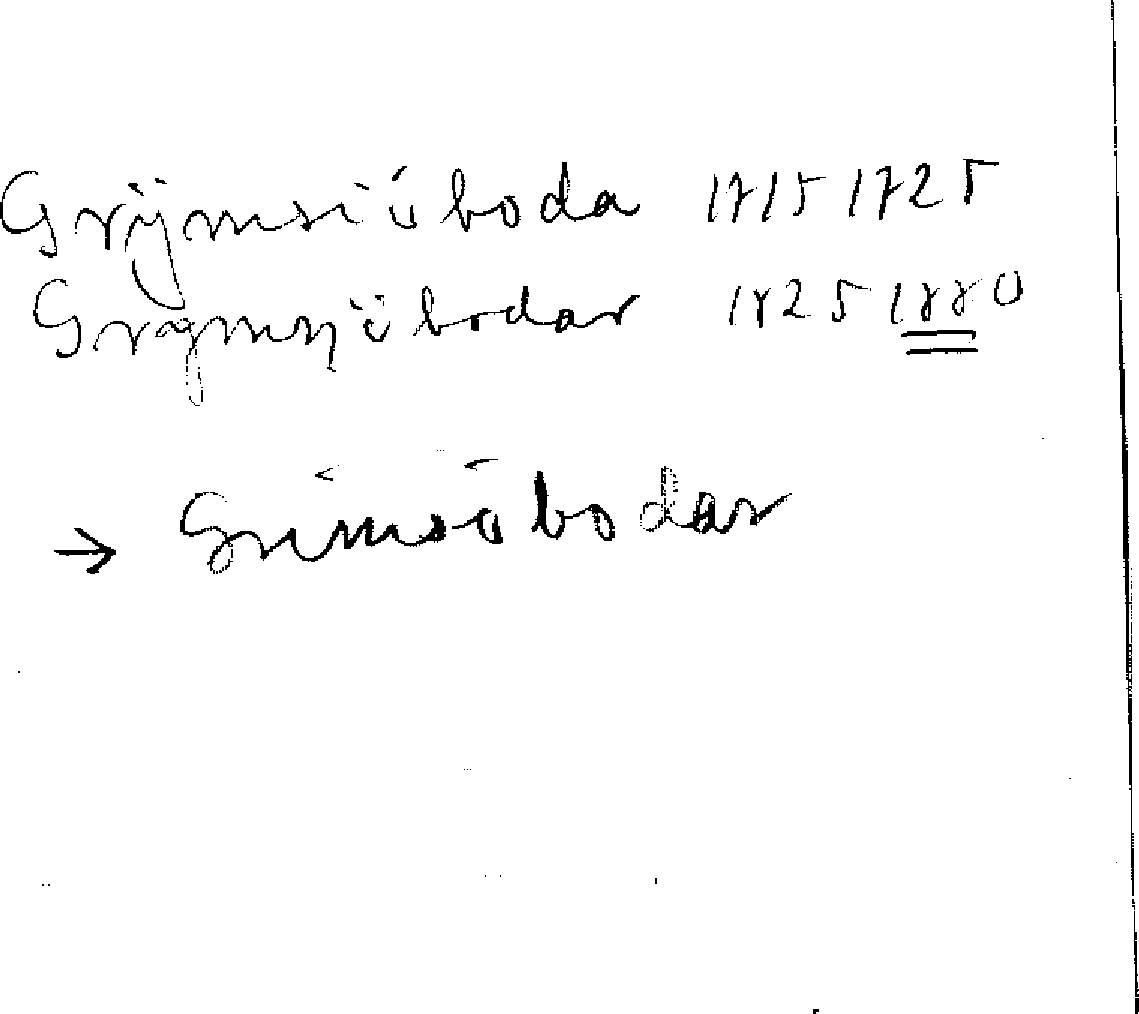 Grÿmsiöboda 1715 1725
Grymsjöbodar 1825 1880
→ Grimsöbodar